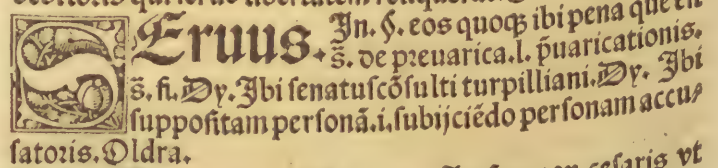 SEruus. In. §. eos quoqꝫ ibi pena que
s̄. de preuarica. l. p̄uaricationis.
s̄. fi. Dy. Ibi senatuscōsulti turpilliani. Dy. Ibi
suppositam personā. i. subijciēdo personam accu⸗
satoris. Oldra.
cesaris vt